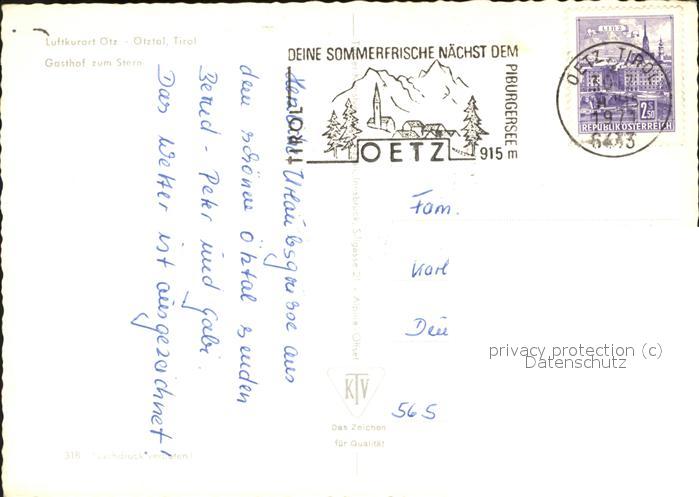 Luftkurort Ötz - Ötztal, Tirol
Gasthof zum Stern
DEINE SOMMERFRISCHE NÄCHST DEM
PIBURGERSEE
TIROL
OETZ
915 m
OETZ, TIROL
1971
6433
LINZ
2 S 50
REPUBLIK ÖSTERREICH
Urlaubsgrüsse aus
dem schönen Ötztal senden
Bernd - Peter und Gabi.
Das Wetter ist ausgezeichnet!
Innsbruck, Sillgasse 21 • Alpine-Offset
Fam.
Karl
565
privacy protection (c)
Datenschutz
KTV
Das Zeichen
für Qualität
318 Nachdruck verboten!